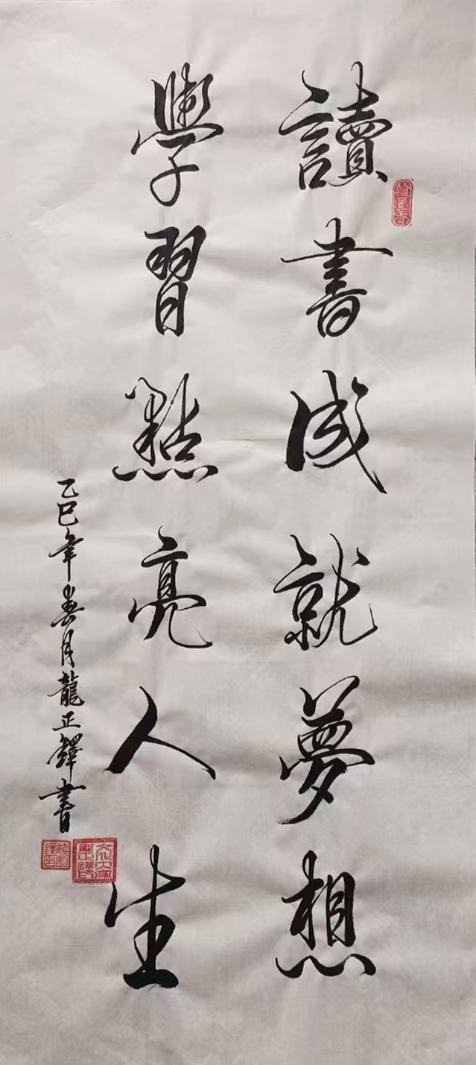 讀書成就夢想
學習點亮人生
乙巳年春月龍正鐸書